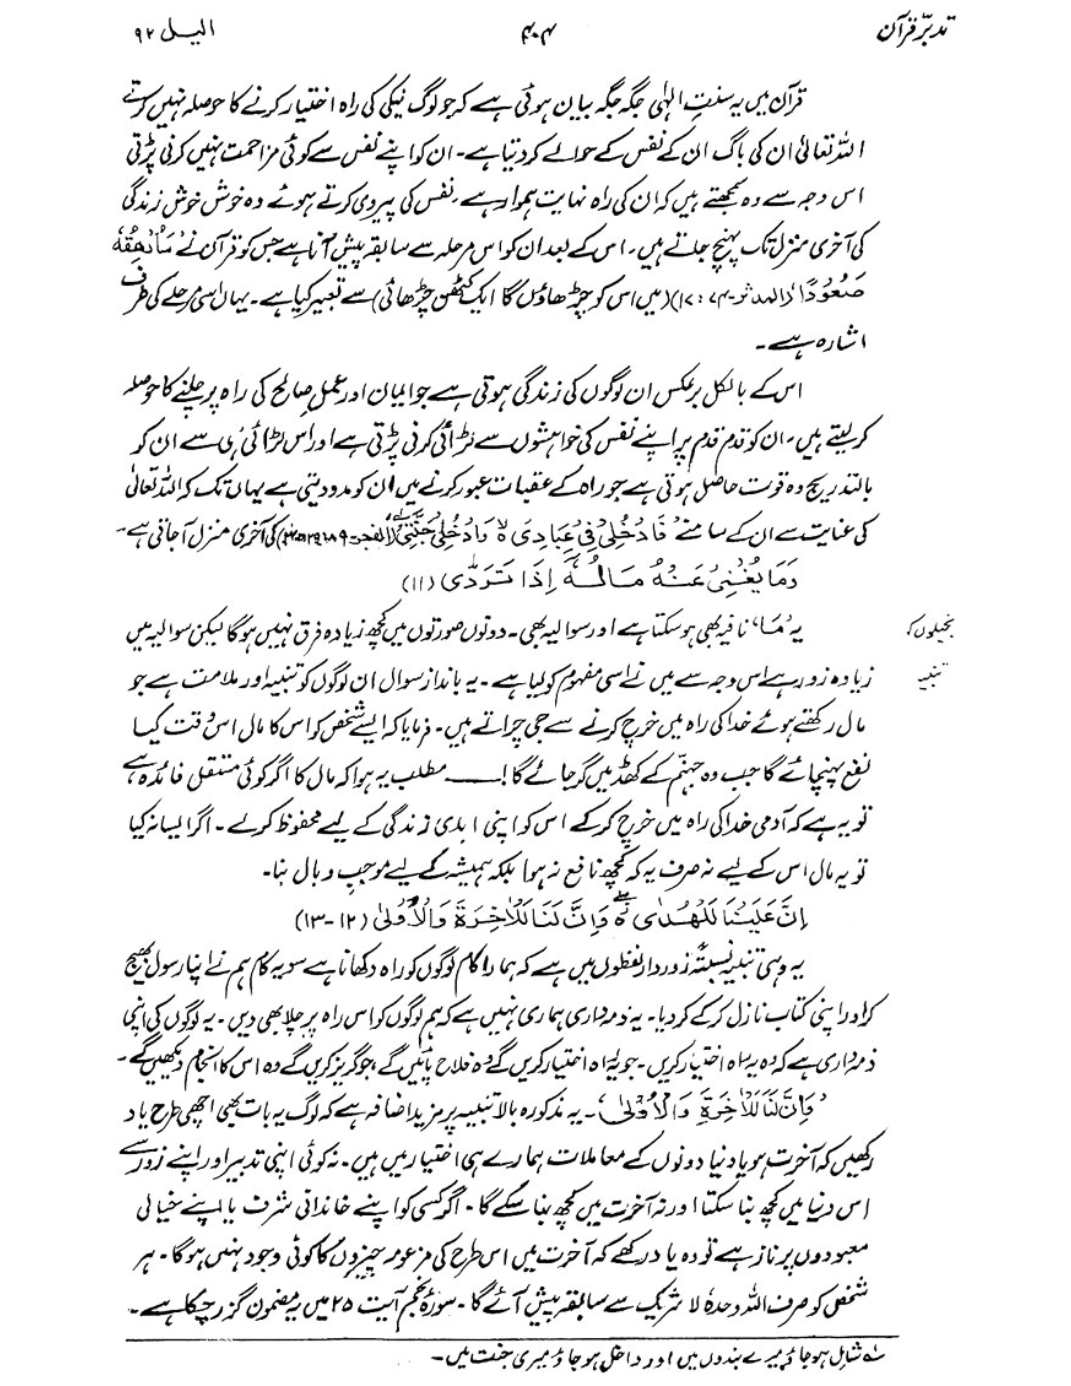 تدبّر قرآن ۴۰۴ الیل ۹۲
قرآن میں یہ سنتِ الٰہی جگہ جگہ بیان ہوئی ہے کہ جو لوگ نیکی کی راہ اختیار کرنے کا حوصلہ نہیں کرتے
اللہ تعالیٰ ان کی باگ ان کے نفس کے حوالے کر دیتا ہے۔ ان کو اپنے نفس سے کوئی مزاحمت نہیں کرنی پڑتی
اس وجہ سے وہ سمجھتے ہیں کہ ان کی راہ نہایت ہموار ہے۔ نفس کی پیروی کرتے ہوئے وہ خوش خوش زندگی
کی آخری منزل تک پہنچ جاتے ہیں۔ اس کے بعد ان کو اس مرحلہ سے سابقہ پیش آتا ہے جس کو قرآن نے 'سَاُرْھِقُہٗ
صَعُوْدًا' (المدثر۔۷۴: ۱۷) (میں اس کو چڑھاؤں گا ایک کٹھن چڑھائی) سے تعبیر کیا ہے۔ یہاں اسی مرحلے کی طرف
اشارہ ہے۔
اس کے بالکل برعکس ان لوگوں کی زندگی ہوتی ہے جو ایمان اور عملِ صالح کی راہ پر چلنے کا حوصلہ
کر لیتے ہیں۔ ان کو قدم قدم پر اپنے نفس کی خواہشوں سے لڑائی کرنی پڑتی ہے اور اس لڑائی ہی سے ان کو
بالتدریج وہ قوت حاصل ہوتی ہے جو راہ کے عقبات عبور کرنے میں ان کو مدد دیتی ہے یہاں تک کہ اللہ تعالیٰ
کی عنایت سے ان کے سامنے 'فَادْخُلِیْ فِیْ عِبَادِیْ ۙ وَادْخُلِیْ جَنَّتِیْ' (الفجر۔ ۸۹: ۲۹۔۳۰) کی آخری منزل آ جاتی ہے۔
وَمَا یُغْنِیْ عَنْہُ مَالُہٗٓ اِذَا تَرَدّٰی (۱۱)
بخیلوں کو
یہ 'مَا' نافیہ بھی ہو سکتا ہے اور سوالیہ بھی۔ دونوں صورتوں میں کچھ زیادہ فرق نہیں ہوگا لیکن سوالیہ میں
تنبیہ
زیادہ زور ہے اس وجہ سے میں نے اسی مفہوم کو لیا ہے۔ یہ بانداز سوال ان لوگوں کو تنبیہ اور ملامت ہے جو
مال رکھتے ہوئے خدا کی راہ میں خرچ کرنے سے جی چراتے ہیں۔ فرمایا کہ ایسے شخص کو اس کا مال اس وقت کیا
نفع پہنچائے گا جب وہ جہنّم کے کھڈ میں گر جائے گا! ـــــ مطلب یہ ہوا کہ مال کا اگر کوئی مستقل فائدہ ہے
تو یہ ہے کہ آدمی خدا کی راہ میں خرچ کرکے اس کو اپنی ابدی زندگی کے لیے محفوظ کرلے۔ اگر ایسا نہ کیا
تو یہ مال اس کے لیے نہ صرف یہ کہ کچھ نافع نہ ہوا بلکہ ہمیشہ کے لیے موجبِ وبال بنا۔
اِنَّ عَلَیْنَا لَلْھُدٰی ۖ وَاِنَّ لَنَا لَلْاٰخِرَۃَ وَالْاُوْلٰی (۱۲-۱۳)
یہ وہی تنبیہ نسبتہً زوردار لفظوں میں ہے کہ ہمارا کام لوگوں کو راہ دکھانا ہے سو یہ کام ہم نے اپنا رسول بھیج
کر اور اپنی کتاب نازل کرکے کر دیا۔ یہ ذمہ داری ہماری نہیں ہے کہ ہم لوگوں کو اس راہ پر چلا بھی دیں۔ یہ لوگوں کی اپنی
ذمہ داری ہے کہ وہ یہ راہ اختیار کریں۔ جو یہ راہ اختیار کریں گے وہ فلاح پائیں گے، جو گریز کریں گے وہ اس کا انجام دیکھیں گے۔
'وَاِنَّ لَنَا لَلْاٰخِرَۃَ وَالْاُوْلٰی'۔ یہ مذکورہ بالا تنبیہ پر مزید اضافہ ہے کہ لوگ یہ بات بھی اچھی طرح یاد
رکھیں کہ آخرت ہو یا دنیا دونوں کے معاملات ہمارے ہی اختیار میں ہیں۔ نہ کوئی اپنی تدبیر اور اپنے زور سے
اس دنیا میں کچھ بنا سکتا اور نہ آخرت میں کچھ بنا سکے گا۔ اگر کسی کو اپنے خاندانی شرف یا اپنے خیالی
معبودوں پر ناز ہے تو وہ یاد رکھے کہ آخرت میں اس طرح کی مزعومہ چیزوں کا کوئی وجود نہیں ہوگا۔ ہر
شخص کو صرف اللہ وحدہٗ لا شریک سے سابقہ پیش آئے گا۔ سورۂ نجم آیت ۲۵ میں یہ مضمون گزر چکا ہے۔
لہ شامل ہو جاؤ میرے بندوں میں اور داخل ہو جاؤ میری جنت میں۔